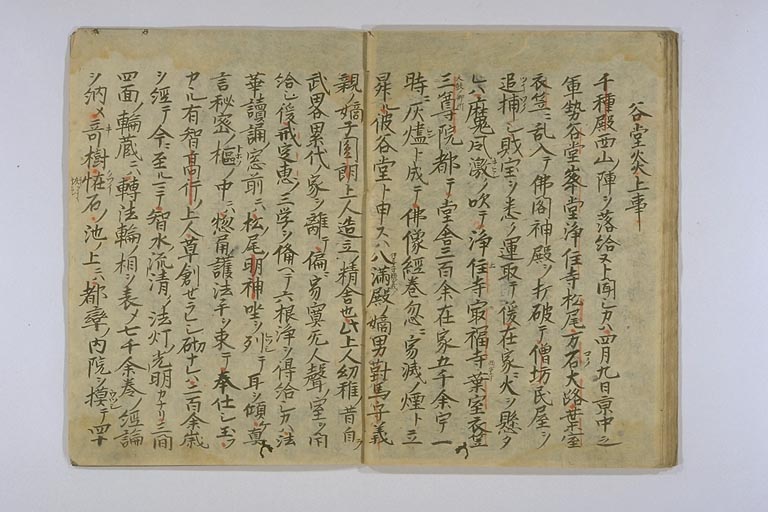 谷堂炎上事
千種殿西山ノ陣ヲ落給ヌト聞シカハ四月九日京中之
軍勢谷堂峯堂浄住寺松尾万石大路葉室
衣笠ニ乱入テ佛閣神殿ヲ打破テ僧坊民屋ヲ
追捕シ財宝ヲ悉ク運取テ後在家ニ火ヲ懸タ
レハ魔風激ク吹テ浄住寺最福寺葉室衣笠
三尊院都テ堂舎三百余在家五千余宇一
時ニ灰燼ト成テ佛像経巻忽ニ寂滅ノ煙ト立
昇ル彼谷堂ト申スハ八満殿ノ嫡男對馬守義
親ノ嫡子延朗上人造立ノ精舎也此上人幼稚ノ昔自ラ
武畧累代ノ家ヲ離テ偏ニ寂寞无人聲ノ室ヲ卜
給シ後戒定恵ノ三学ヲ備ヘテ六根浄ヲ得給シカハ法
華讀誦ノ窓前ニハ松尾明神坐列シテ耳ヲ傾ケ真
言秘密ノ樞ノ中ニハ惣角護法手ヲ束テ奉仕シ玉フ
カヽル有智高行ノ上人草創セラレシ砌ナレハ二百余歳
ヲ経テ今ニ至ルニテ智水流清ク法灯光明カナリ三間
四面ノ輪蔵ニハ轉法輪ノ相ヲ表メ七千余巻ノ経論
ヲ納メ奇樹怪石ノ池ノ上ニハ都率ノ内院ヲ摸テ四十